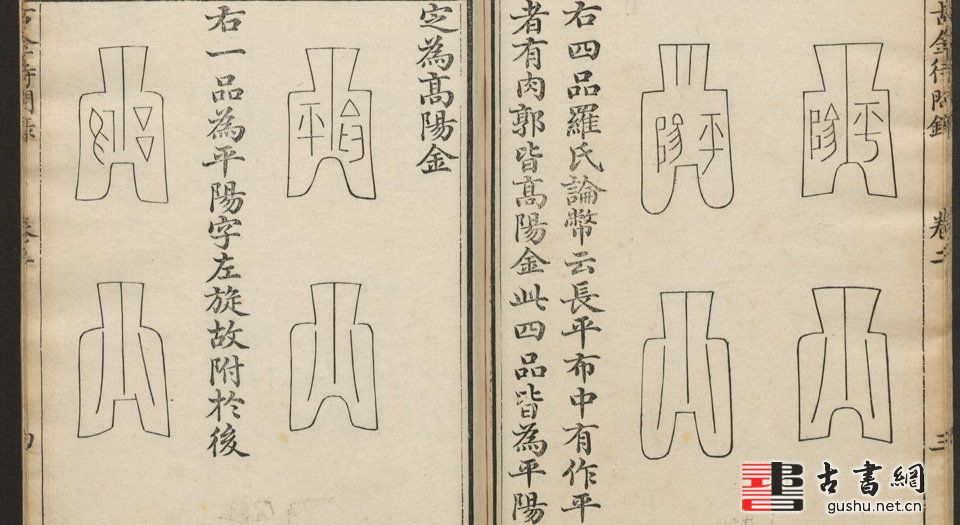 古金待問錄
卷二
三
平陽
平陽
右四品羅氏論幣云長平布中有作平
者有肉郭皆髙陽金此四品皆為平陽
定為髙陽金
右一品為平陽字左旋故附於後
四
古書網
gushu.net.cn